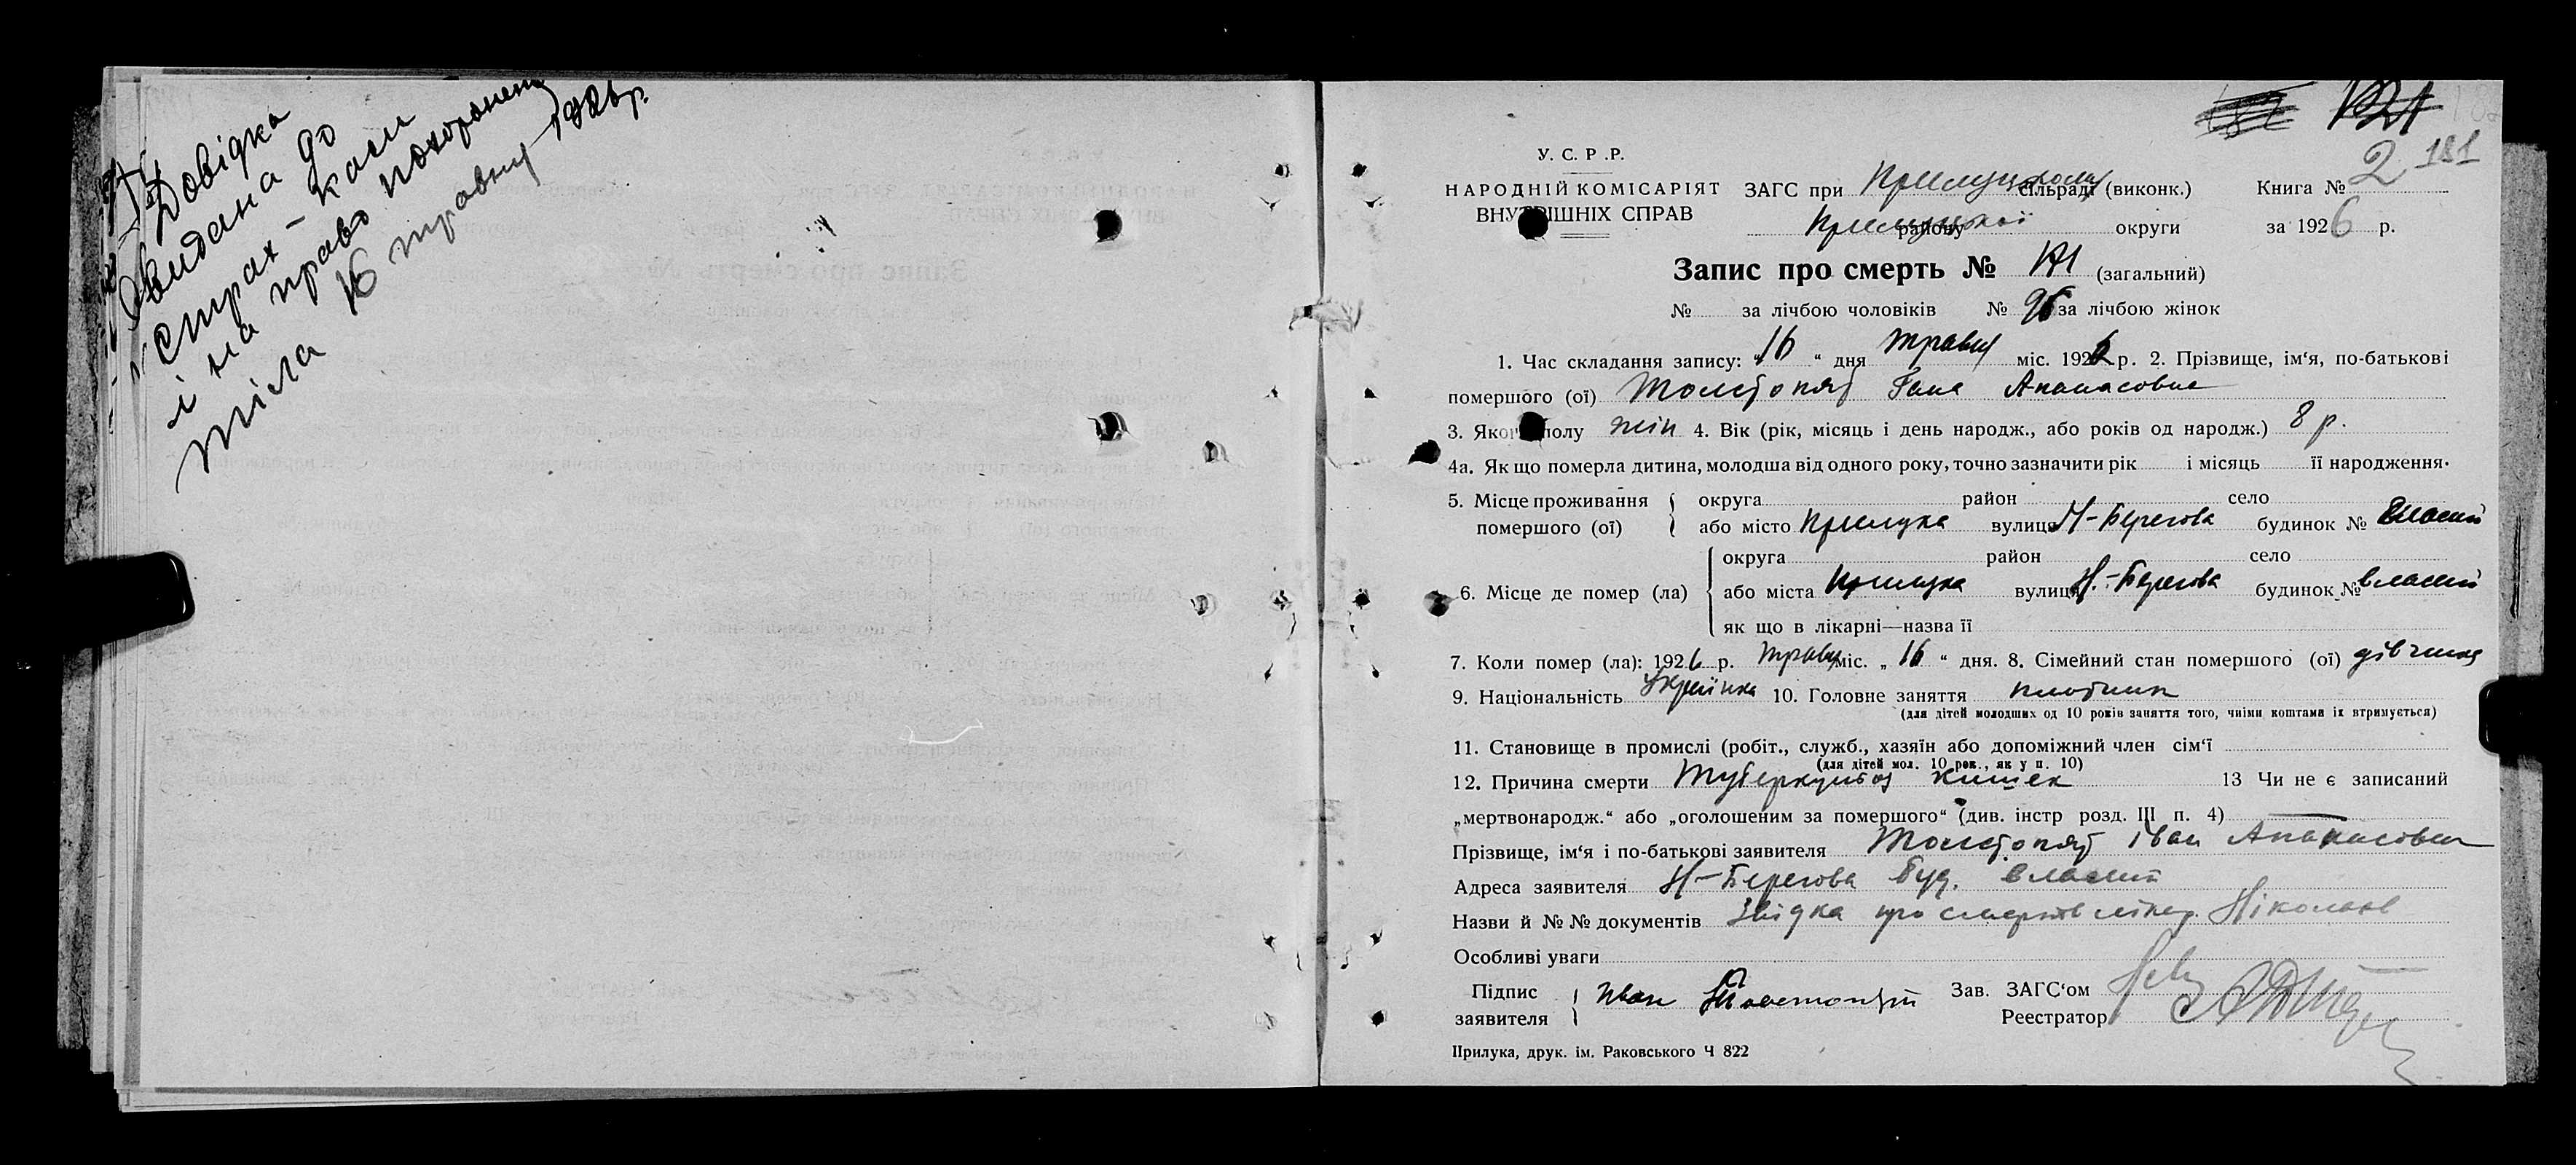 Довідка
видана до
страх-каси
і на право похоронення
тіла 16 травня 1926 р.
181
У. С. Р. Р.
НАРОДНІЙ КОМІСАРІЯТ
ВНУТРІШНІХ СПРАВ
ЗАГС при Прилуцькому сільраді (виконк.)
Прилуцької району округи
Книга № 2
за 1926 р.
Запис про смерть № (загальний)
№ за лічбою чоловіків № за лічбою жінок
1. Час складання запису: „16“ дня травня міс. 1926 р. 2. Прізвище, ім‘я, по-батькові
помершого (ої) Толстопят Ганна Апанасовна
3. Якого полу жін 4. Вік (рік, місяць і день народж., або років од народж.) 8 р.
4а. Як що померла дитина, молодша від одного року, точно зазначити рік і місяць її народження.
5. Місце проживання помершого (ої) { округа район село
або місто Прилука вулиця Н-Берегова будинок № власний
6. Місце де помер (ла) { округа район село
або міста Прилука вулиця Н.-Берегова будинок № власний
як що в лікарні—назва її
7. Коли помер (ла): 1926 р. травня міс. „16“ дня. 8. Сімейний стан помершого (ої) дівчина
9. Національність Українка 10. Головне заняття плотник
(для дітей молодших од 10 років заняття того, чиїми коштами їх втримується)
11. Становище в промислі (робіт., служб., хазяїн або допоміжний член сім‘ї
(для дітей мол. 10 рок., як у п. 10)
12. Причина смерти Туберкульоз кишек 13 Чи не є записаний
„мертвонародж.“ або „оголошеним за помершого“ (див. інстр розд. III п. 4)
Прізвище, ім‘я і по-батькові заявителя Толстопят Іван Апанасович
Адреса заявителя Н-Берегова буд. власний
Назви й №№ документів Звідка про смерть лікар. Ніколаєв
Особливі уваги
Підпис заявителя { Иван Толстопят
Зав. ЗАГС‘ом
Реестратор
Прилука, друк. ім. Раковського Ч 822